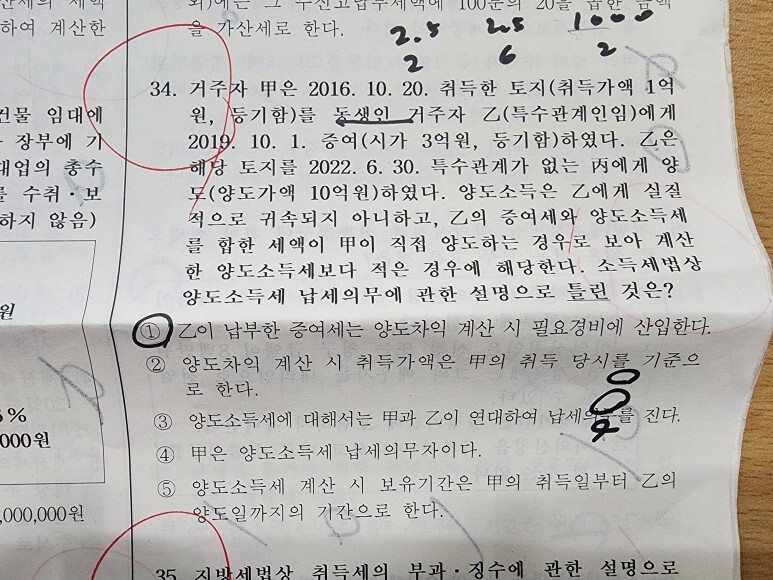 산세의 세액
하여 계산한
외)에는 그 무신고납부세액에 100분의 20을 곱한 금액
을 가산세로 한다.
2.5
2
2.5
6
1000
2
건물 임대에
장부에 기
대업의 총수
를 수취·보
하지 않음)
원
%
000원
,000,000원
34. 거주자 甲은 2016. 10. 20. 취득한 토지(취득가액 1억
원, 등기함)를 동생인 거주자 乙(특수관계인임)에게
2019. 10. 1. 증여(시가 3억원, 등기함)하였다. 乙은
해당 토지를 2022. 6. 30. 특수관계가 없는 丙에게 양
도(양도가액 10억원)하였다. 양도소득은 乙에게 실질
적으로 귀속되지 아니하고, 乙의 증여세와 양도소득세
를 합한 세액이 甲이 직접 양도하는 경우로 보아 계산
한 양도소득세보다 적은 경우에 해당한다. 소득세법상
양도소득세 납세의무에 관한 설명으로 틀린 것은?
① 乙이 납부한 증여세는 양도차익 계산 시 필요경비에 산입한다.
② 양도차익 계산 시 취득가액은 甲의 취득 당시를 기준으
로 한다.
③ 양도소득세에 대해서는 甲과 乙이 연대하여 납세의무를 진다.
④ 甲은 양도소득세 납세의무자이다.
⑤ 양도소득세 계산 시 보유기간은 甲의 취득일부터 乙의
양도일까지의 기간으로 한다.
35. 지방세법상 취득세의 부과·징수에 관한 설명으로